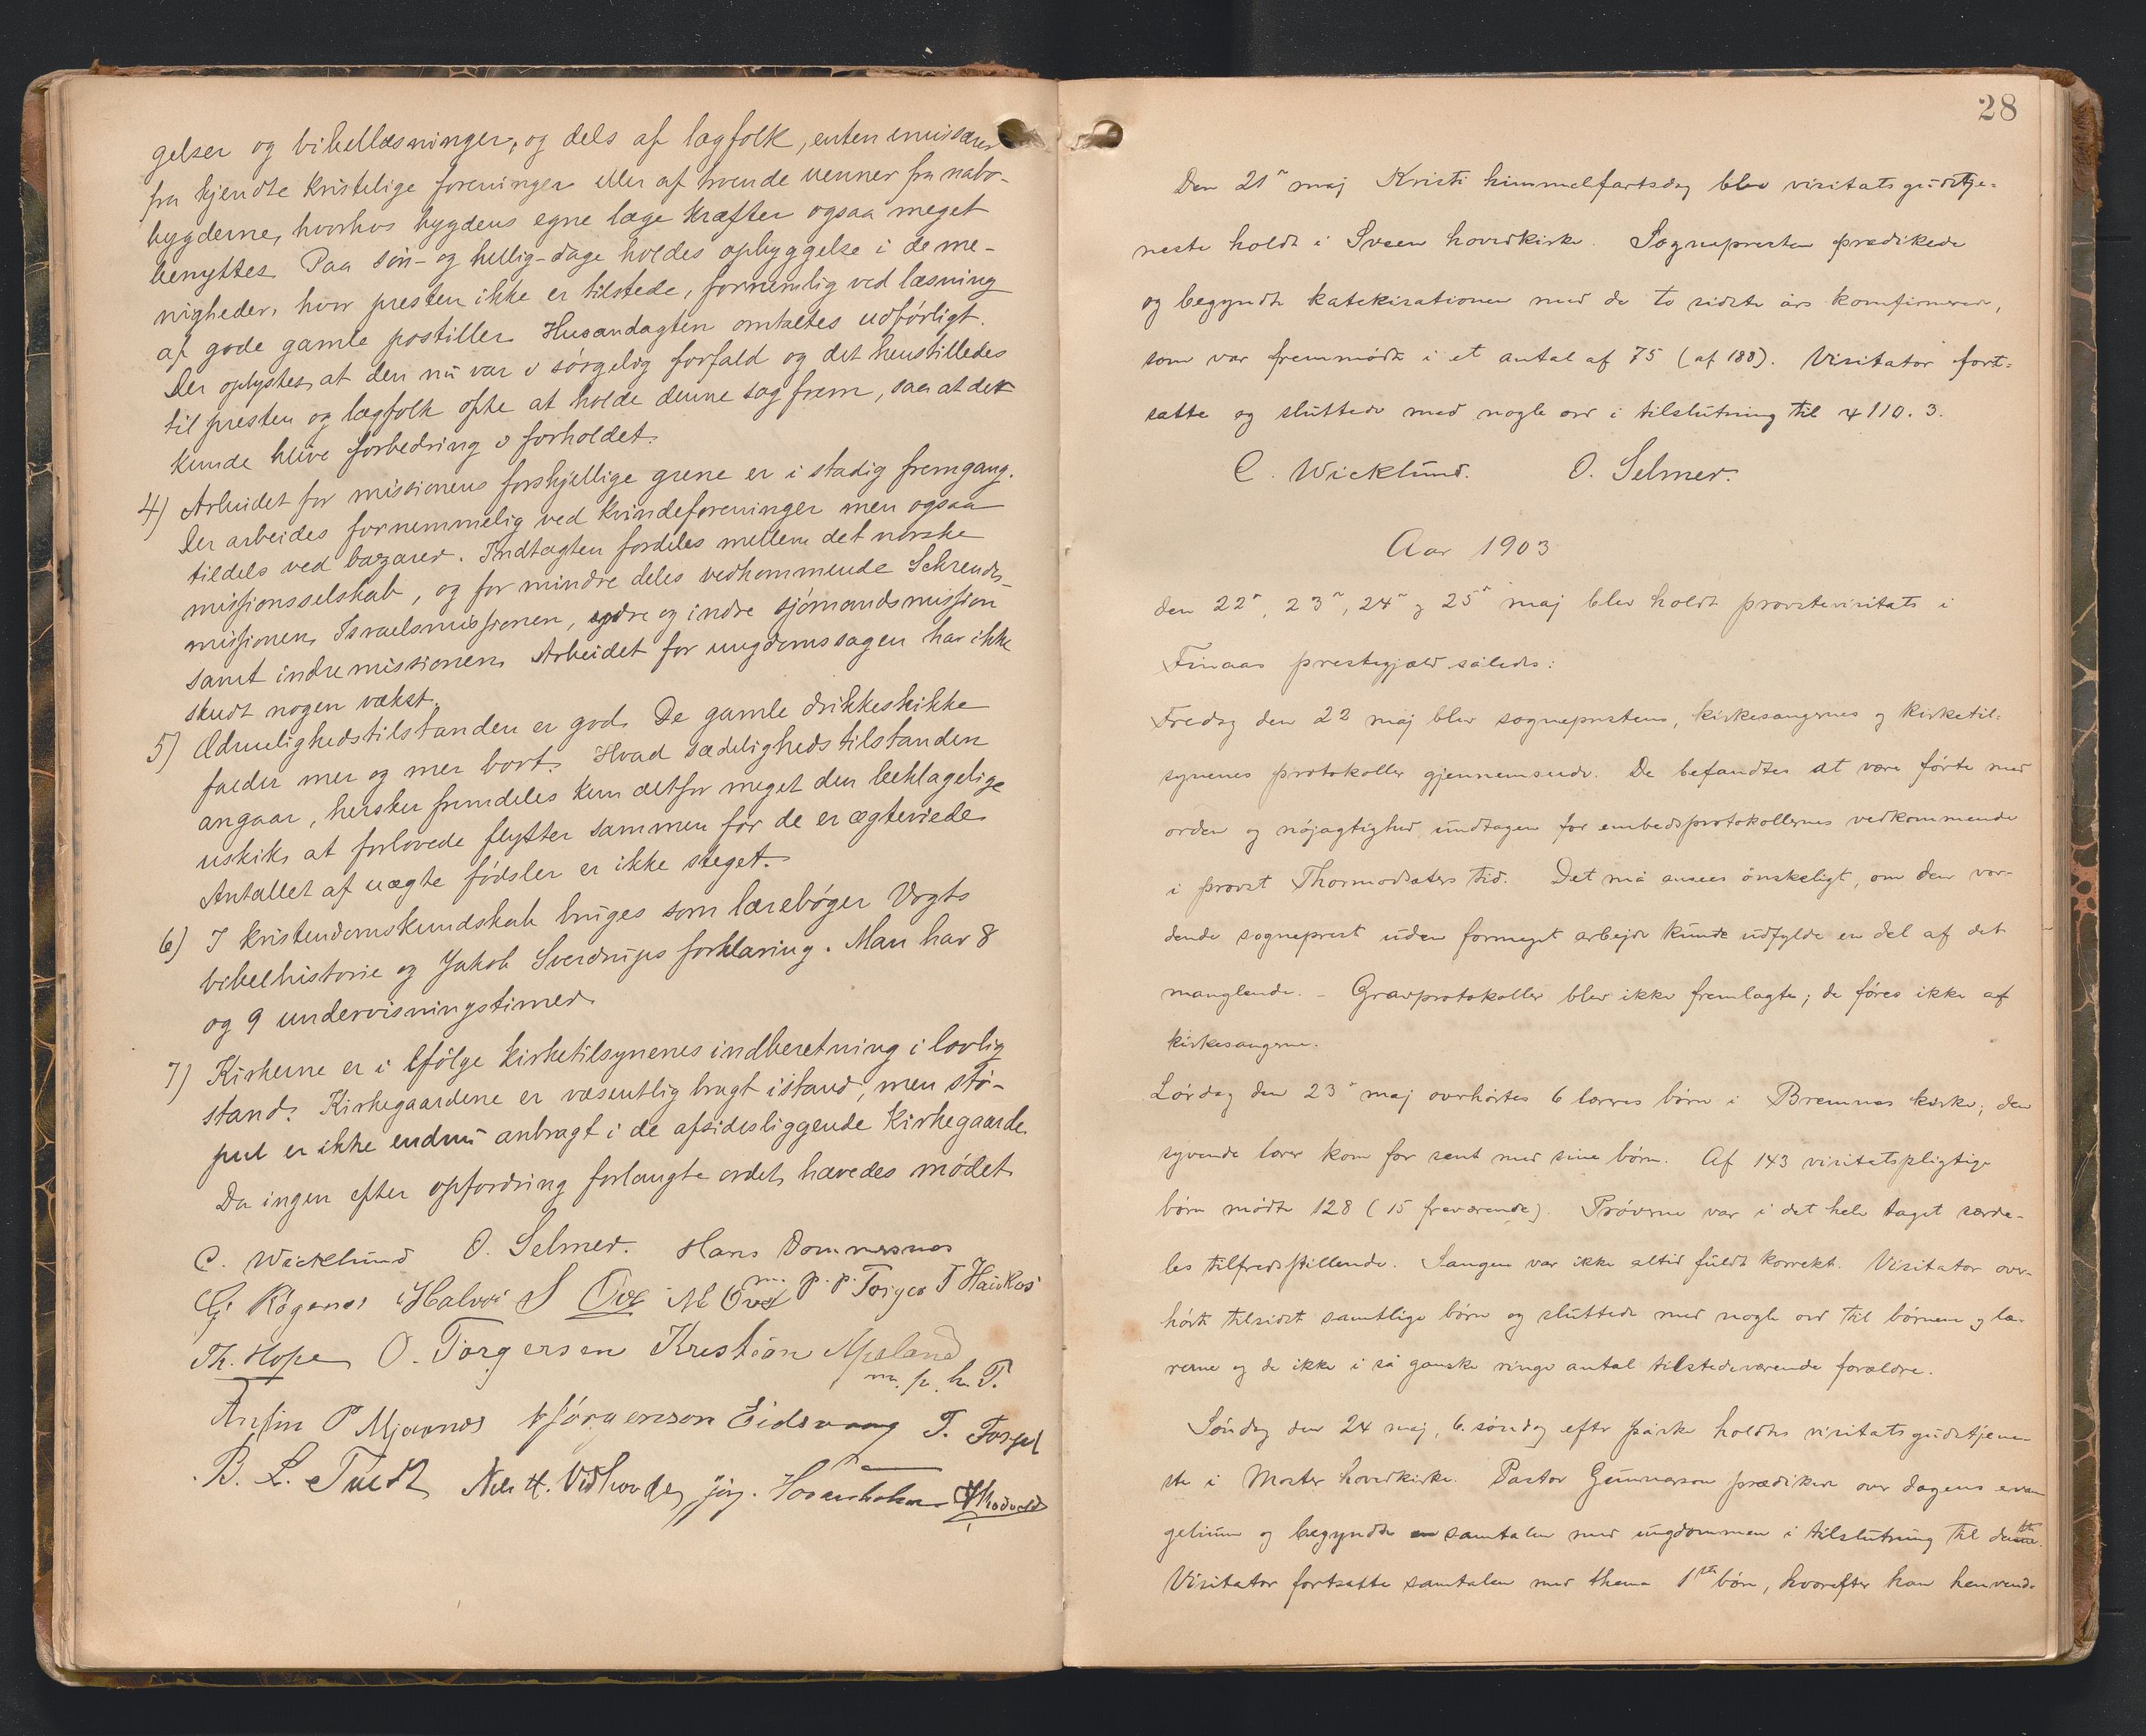 gelser og bibellæsninger, og dels af lægfolk, enten emissærer
fra kjendte kristelige foreninger eller af troende venner fra nabo-
bygderne, hvorhos bygdens egne læge kræfter ogsaa meget
benyttes. Paa søn- og hellig-dage holdes opbyggelse i de me-
nigheder, hvor presten ikke er tilstede, fornemlig ved læsning
af gode gamle postiller. Husandagten omtaltes udførligt.
Der oplystes, at den nu var i sørgelig forfald og det henstilledes
til presten og lægfolk ofte at holde denne sag frem, saa at det
kunde blive forbedring i forholdet.
4) Arbeidet for missionens forskjellige grene er i stadig fremgang.
Der arbeides fornemmelig ved kvindeforeninger men ogsaa
tildels ved bazarer. Indtægten fordeles mellem det norske
missionsselskab, og for mindre deles vedkommende Schreuders-
missionen, Israelsmissionen, ydre og indre sjømandsmission
samt indre missionen. Arbeidet for ungdomssagen har ikke
skudt nogen vækst.
5) Ædruelighedstilstanden er god. De gamle drikkeskikke
falder mer og mer bort. Hvad sædelighedstilstanden
angaar, hersker fremdeles kun altfor meget den beklagelige
uskik, at forlovede flytter sammen før de er ægteviede.
Antallet af uægte fødsler er ikke steget.
6) I kristendomskundskab bruges som lærebøger Vogts
bibelhistorie og Jakob Sverdrups forklaring. Man har 8
og 9 undervisningstimer.
7) Kirkerne er i følge kirketilsynenes indberetning i lovlig
stand. Kirkegaardene er væsentlig bragt istand, men stø-
pul er ikke endnu anbragt i de afsidesliggende kirkegaarde.
Da ingen efter opfordring forlangte ordet, hævedes mødet.
C. Wicklund O. Selmer. Hans Dommersnes
G. Røgenes Halvor S Ove M Ove m. p. p. Torger T
Th. Hope O. Torgersen Kristian Apeland
m. p. h. T.
Anfin P Mjovnes Jørgenson Eidsvaag T.
B. L. Tuedt Nils H. Jørg.
28
Den 21de maj Kristi himmelfartsdag blev visitatsgudstje-
neste holdt i Sveen hovedkirke. Sognepresten prædikede
og begyndte katekisationen med de to sidste års komfirmerede,
som var fremmødte i et antal af 75 (af 188). Visitator fort-
satte og sluttede med nogle ord i tilslutning til ψ 110. 3.
C. Wicklund. O. Selmer.
Aar 1903
den 22de, 23de, 24de og 25de maj blev holdt provstevisitats i
Finaas prestegjæld således:
Fredag den 22 maj blev sogneprestens, kirkesangernes og kirketil-
synenes protokoller gjennemseede. De befandtes at være førte med
orden og nøjagtighed undtagen for embedsprotokollernes vedkommende
i provst Thormodsæters tid. Det må ansees ønskeligt, om den vor-
dende sogneprest uden formeget arbejde kunde udfylde en del af det
manglende. - Gravprotokoller blev ikke fremlagte; de føres ikke af
kirkesangerne.
Lørdag den 23de maj overhørtes 6 læreres børn i Bremnes kirke; den
syvende lærer kom for sent med sine børn. Af 143 visitatspligtige
børn mødte 128 (15 fraværende). Prøverne var i det hele taget særde-
les tilfredsstillende. Sangen var ikke altid fuldt korrekt. Visitator over-
hørte tilsidst samtlige børn og sluttede med nogle ord til børnene og læ-
rerne og de ikke i så ganske ringe antal tilstedeværende forældre.
Søndag den 24 maj, 6. søndag efter påske holdtes visitatsgudstjene-
ste i Moster hovedkirke. Pastor Gunnarson prædikede over dagens evan
gelium og begyndte samtalen med ungdommen i tilslutning til dette.
Visitator fortsatte samtalen med thema 1ste bøn, hvorefter han henvendte